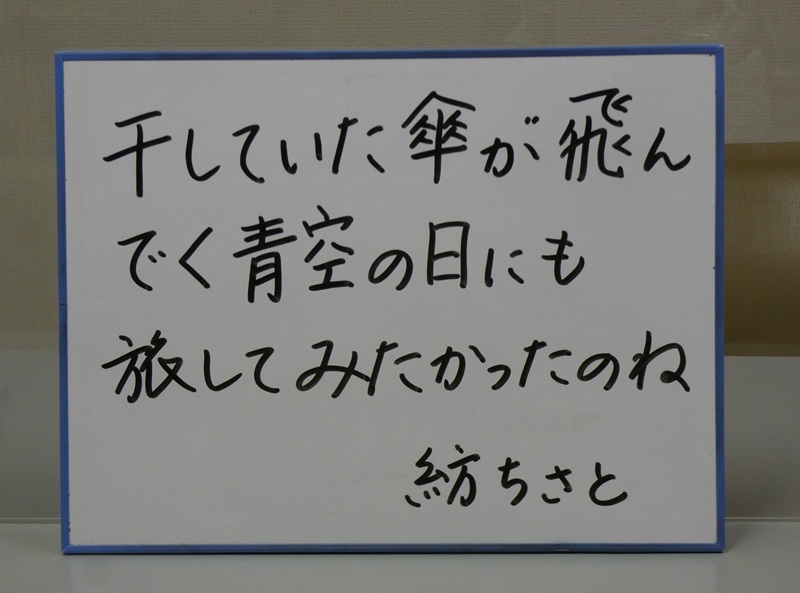 干していた傘が飛ん
でく青空の日にも
旅してみたかったのね
紡ちさと